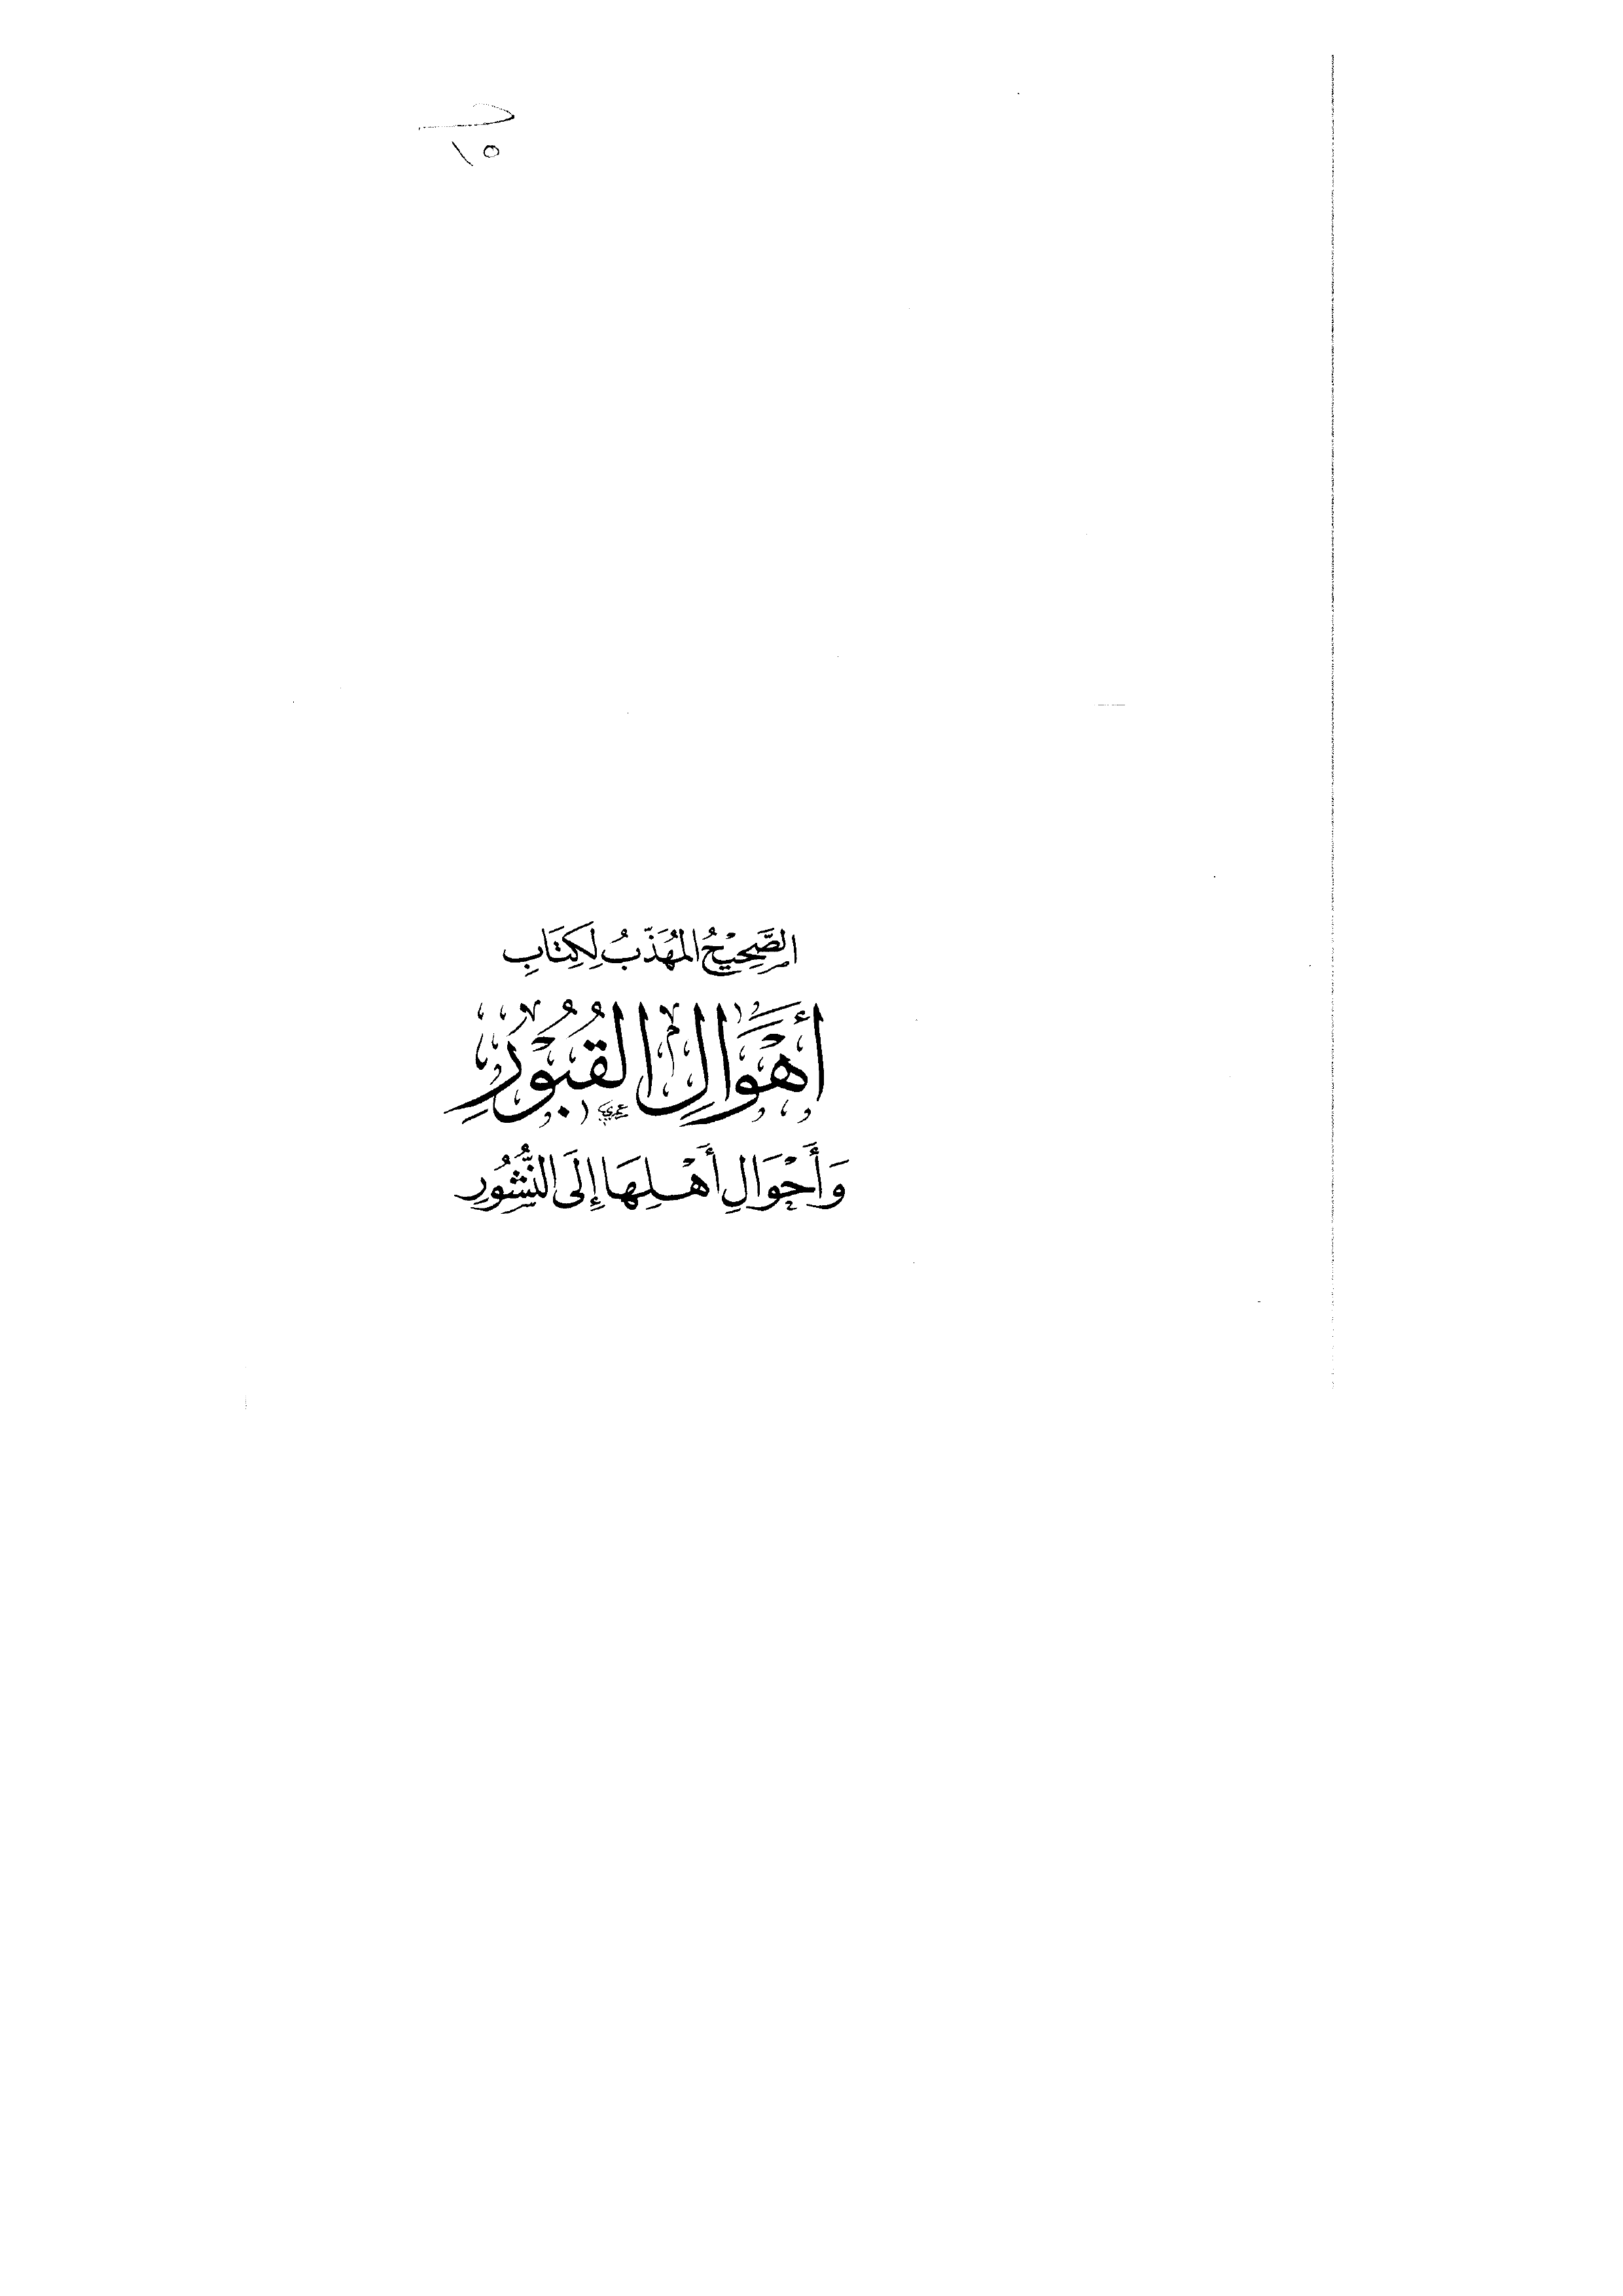 ١٥
الصَّحِيْحُ المُهَذَّبُ لِكِتَابِ
أَهْوَالِ القُبُوْرِ
وَأَحْوَالِ أَهْلِهَا إِلَى النُّشُورِ